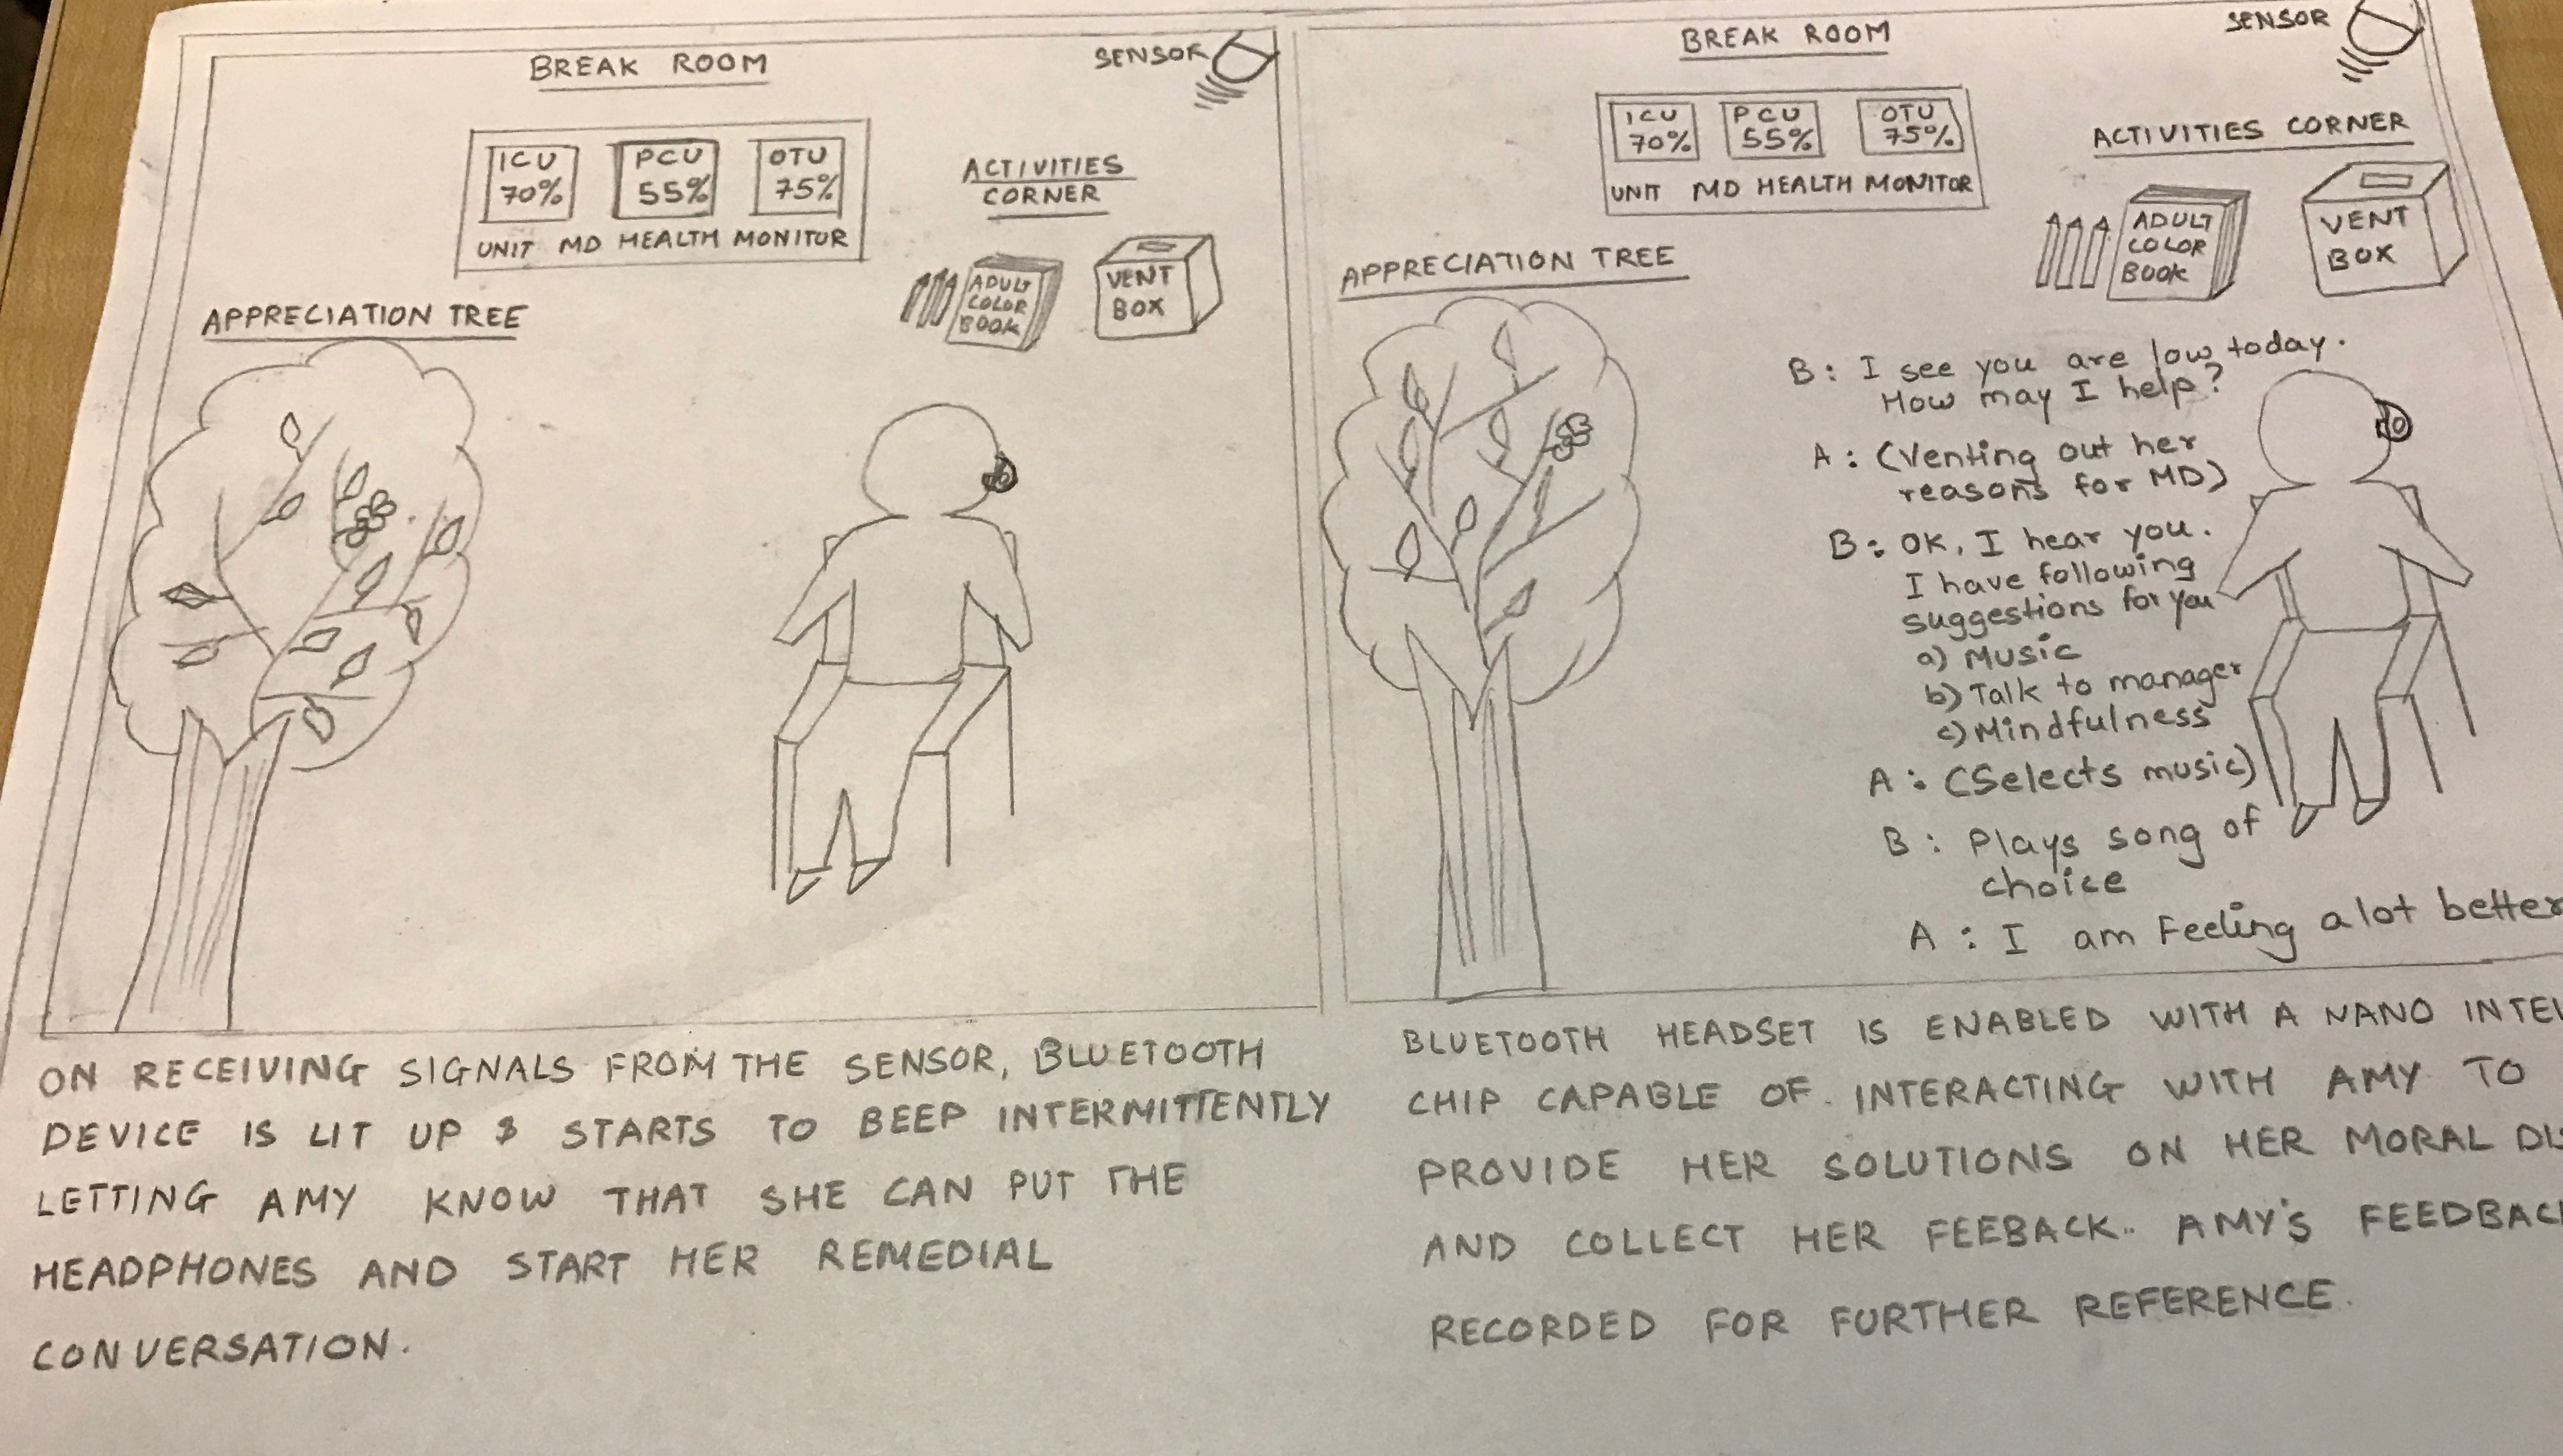 BREAK ROOM
SENSOR
ICU
70%
PCU
55%
OTU
75%
UNIT MD HEALTH MONITOR
ACTIVITIES
CORNER
ADULT
COLOR
BOOK
VENT
BOX
APPRECIATION TREE
ON RECEIVING SIGNALS FROM THE SENSOR, BLUETOOTH
DEVICE IS LIT UP & STARTS TO BEEP INTERMITTENTLY
LETTING AMY KNOW THAT SHE CAN PUT THE
HEADPHONES AND START HER REMEDIAL
CONVERSATION.
BREAK ROOM
SENSOR
ICU
70%
PCU
55%
OTU
75%
UNIT MD HEALTH MONITOR
ACTIVITIES CORNER
ADULT
COLOR
BOOK
VENT
BOX
APPRECIATION TREE
B: I see you are low today.
How may I help?
A: (Venting out her
reasons for MD)
B: OK, I hear you.
I have following
suggestions for you
a) Music
b) Talk to manager
c) Mindfulness
A: (Selects music)
B: Plays song of
choice
A: I am Feeling a lot better
BLUETOOTH HEADSET IS ENABLED WITH A NANO
CHIP CAPABLE OF INTERACTING WITH AMY TO
PROVIDE HER SOLUTIONS ON HER MORAL
AND COLLECT HER FEEBACK.. AMY'S FEEDBAC
RECORDED FOR FURTHER REFERENCE.